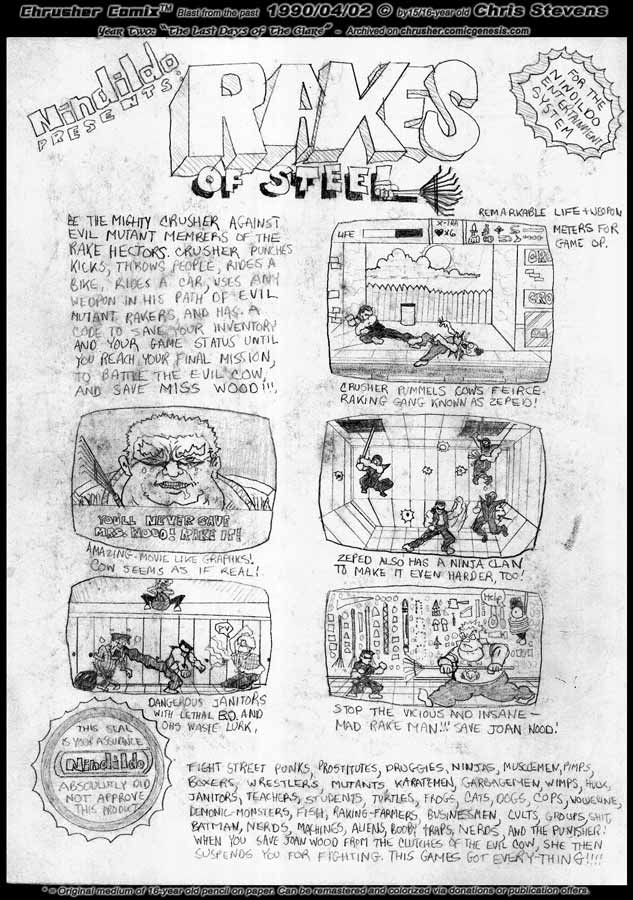 Chrusher Comix™ Blast from the past 1990/04/02 © by 15/16-year old Chris Stevens
Year Two: "The Last Days of The Glare" - Archived on chrusher.comicgenesis.com
Nindildo
PRESENTS:
RAKES
OF STEEL
FOR THE
NINDILDO
ENTERTAINMENT
SYSTEM
BE THE MIGHTY CRUSHER AGAINST
EVIL MUTANT MEMBERS OF THE
RAKE HECTORS. CRUSHER PUNCHES
KICKS, THROWS PEOPLE, RIDES A
BIKE, RIDES A CAR, USES ANY
WEOPON IN HIS PATH OF EVIL
MUTANT RAKERS, AND HAS A
CODE TO SAVE YOUR INVENTORY
AND YOUR GAME STATUS UNTIL
YOU REACH YOUR FINAL MISSION,
TO BATTLE THE EVIL COW,
AND SAVE MISS WOOD!!!,
REMARKABLE LIFE + WEOPON
METERS FOR
GAME OP.
LIFE
X-TRA
♥X6
CRUSHER PUMMELS COWS FEIRCE
RAKING GANG KNOWN AS ZEPED!
YOULL NEVER SAVE
MRS. NOOD! RAKE IT!
AMAZING-MOVIE LIKE GRAPHIKS!
COW SEEMS AS IF REAL!
ZEPED ALSO HAS A NINJA CLAN
TO MAKE IT EVEN HARDER, TOO!
DANGEROUS JANITORS
WITH LETHAL B.O. AND
OHS WASTE LURK,
Help
STOP THE VICIOUS AND INSANE
MAD RAKE MAN!!! SAVE JOAN NOOD!
THIS SEAL
IS YOUR ASSURANCE
Nindildo
ABSOLUTLY DID
NOT APPROVE
THIS PRODUCT
FIGHT STREET PUNKS, PROSTITUTES, DRUGGIES, NINJAS, MUSCLEMEN, PIMPS,
BOXERS, WRESTLERS MUTANTS KARATEMEN, GARBAGEMEN, WIMPS, HULK,
JANITORS, TEACHERS, STUDENTS, TURTLES, FROGS, CATS, DOGS, COPS, WOLVERINE,
DEMONIC-MONSTERS, FISH, RAKING-FARMERS, BUSINESSMEN, CULTS, GROUPS, SHIT,
BATMAN, NERDS, MACHINGS, ALIENS, BOOBY TRAPS, NERDS, AND THE PUNISHER!
WHEN YOU SAVE JOAN WOOD FROM THE CLUTCHES OF THE EVIL COW, SHE THEN
SUSPENDS YOU FOR FIGHTING. THIS GAMES GOT EVERY-THING!!!!
* = Original medium of 16-year old pencil on paper. Can be remastered and colorized via donations or publication offers.